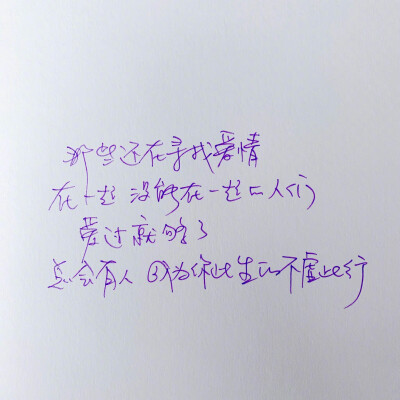 那些还在寻找爱情
在一起 没能在一起的人们
爱过就够了
总会有人 因为你此生而不虚此行